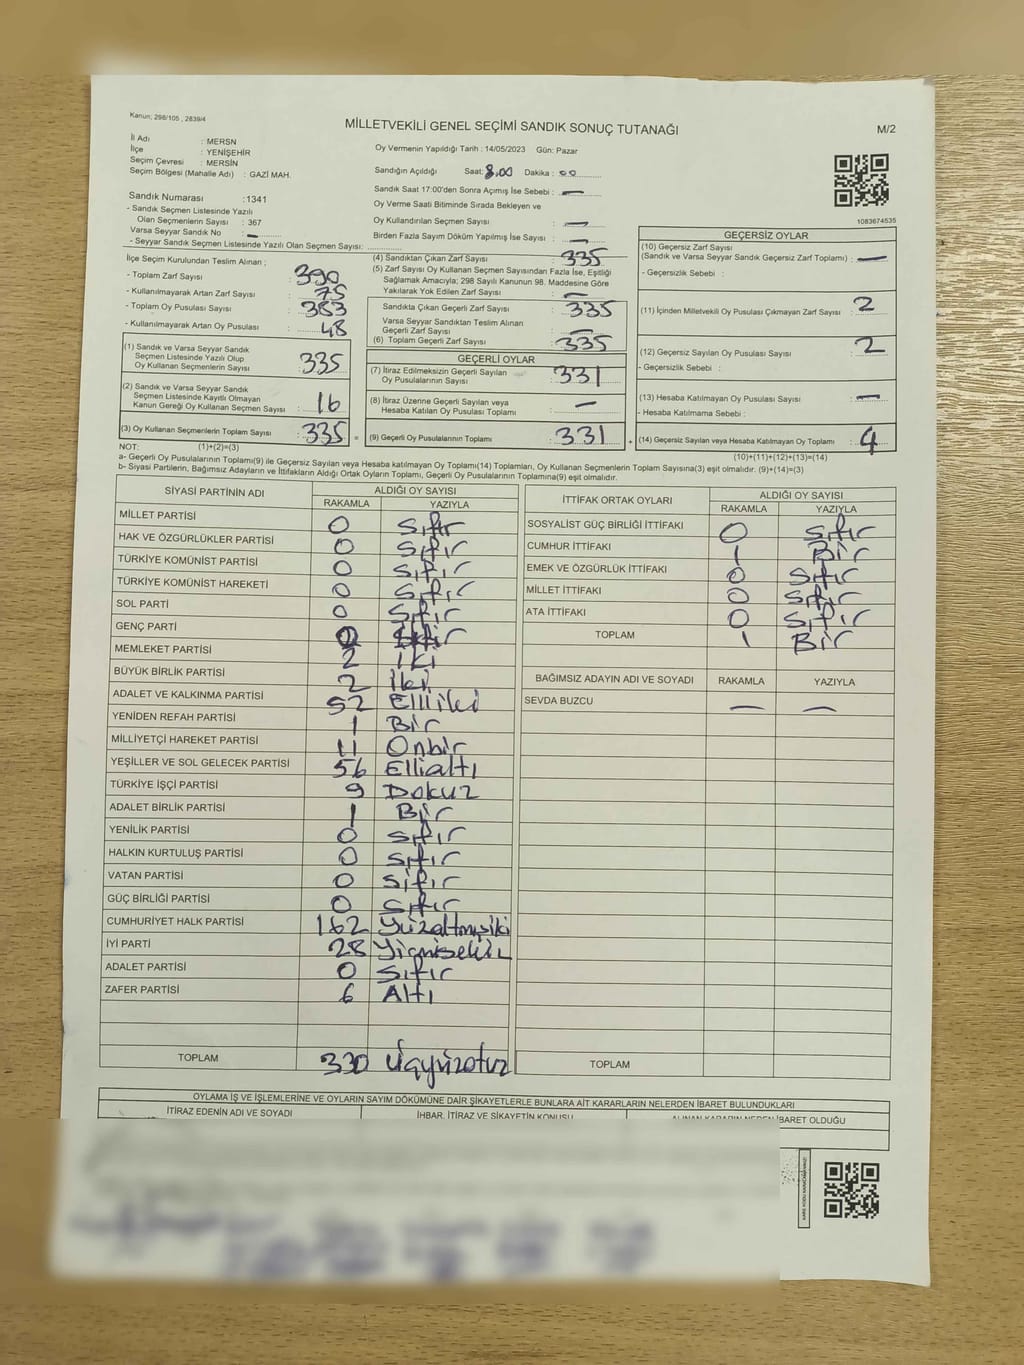 Kanun; 298/105 , 2839/4
MİLLETVEKİLİ GENEL SEÇİMİ SANDIK SONUÇ TUTANAĞI
M/2
İl Adı : MERSN
İlçe : YENİŞEHİR
Seçim Çevresi : MERSİN
Seçim Bölgesi (Mahalle Adı) : GAZİ MAH.
Sandık Numarası :1341
- Sandık Seçmen Listesinde Yazılı
Olan Seçmenlerin Sayısı : 367
Varsa Seyyar Sandık No : —
- Seyyar Sandık Seçmen Listesinde Yazılı Olan Seçmen Sayısı:
Oy Vermenin Yapıldığı Tarih : 14/05/2023 Gün: Pazar
Sandığın Açıldığı Saat: 8.00 Dakika : 00
Sandık Saat 17:00'den Sonra Açımış İse Sebebi : —
Oy Verme Saati Bitiminde Sırada Bekleyen ve
Oy Kullandırılan Seçmen Sayısı : —
Birden Fazla Sayım Döküm Yapılmış İse Sayısı : —
1083674535
İlçe Seçim Kurulundan Teslim Alınan ;
- Toplam Zarf Sayısı : 390
- Kullanılmayarak Artan Zarf Sayısı : 75
- Toplam Oy Pusulası Sayısı : 383
- Kullanılmayarak Artan Oy Pusulası : 48
(1) Sandık ve Varsa Seyyar Sandık
Seçmen Listesinde Yazılı Olup
Oy Kullanan Seçmenlerin Sayısı : 335
(2) Sandık ve Varsa Seyyar Sandık
Seçmen Listesinde Kayıtlı Olmayan
Kanun Gereği Oy Kullanan Seçmen Sayısı : 16
(3) Oy Kullanan Seçmenlerin Toplam Sayısı : 335 =
(4) Sandıktan Çıkan Zarf Sayısı : 335
(5) Zarf Sayısı Oy Kullanan Seçmen Sayısından Fazla İse, Eşitliği
Sağlamak Amacıyla; 298 Sayılı Kanunun 98. Maddesine Göre
Yakılarak Yok Edilen Zarf Sayısı : —
Sandıkta Çıkan Geçerli Zarf Sayısı : 335
Varsa Seyyar Sandıktan Teslim Alınan
Geçerli Zarf Sayısı : —
(6) Toplam Geçerli Zarf Sayısı : 335
GEÇERLİ OYLAR
(7) İtiraz Edilmeksizin Geçerli Sayılan
Oy Pusulalarının Sayısı : 331
(8) İtiraz Üzerine Geçerli Sayılan veya
Hesaba Katılan Oy Pusulası Toplamı : —
(9) Geçerli Oy Pusulalarının Toplamı : 331 +
GEÇERSİZ OYLAR
(10) Geçersiz Zarf Sayısı
(Sandık ve Varsa Seyyar Sandık Geçersiz Zarf Toplamı) : —
- Geçersizlik Sebebi :
(11) İçinden Milletvekili Oy Pusulası Çıkmayan Zarf Sayısı : 2
(12) Geçersiz Sayılan Oy Pusulası Sayısı : 2
- Geçersizlik Sebebi :
(13) Hesaba Katılmayan Oy Pusulası Sayısı : —
- Hesaba Katılmama Sebebi :
(14) Geçersiz Sayılan veya Hesaba Katılmayan Oy Toplamı : 4
NOT: (1)+(2)=(3)
(10)+(11)+(12)+(13)=(14)
a- Geçerli Oy Pusulalarının Toplamı(9) ile Geçersiz Sayılan veya Hesaba katılmayan Oy Toplamı(14) Toplamları, Oy Kullanan Seçmenlerin Toplam Sayısına(3) eşit olmalıdır. (9)+(14)=(3)
b- Siyasi Partilerin, Bağımsız Adayların ve İttifakların Aldığı Ortak Oyların Toplamı, Geçerli Oy Pusulalarının Toplamına(9) eşit olmalıdır.
SİYASİ PARTİNİN ADI ALDIĞI OY SAYISI
RAKAMLA YAZIYLA
MİLLET PARTİSİ 0 Sıfır
HAK VE ÖZGÜRLÜKLER PARTİSİ 0 Sıfır
TÜRKİYE KOMÜNİST PARTİSİ 0 Sıfır
TÜRKİYE KOMÜNİST HAREKETİ 0 Sıfır
SOL PARTİ 0 Sıfır
GENÇ PARTİ 0 Sıfır
MEMLEKET PARTİSİ 2 İki
BÜYÜK BİRLİK PARTİSİ 2 İki
ADALET VE KALKINMA PARTİSİ 52 Elliiki
YENİDEN REFAH PARTİSİ 1 Bir
MİLLİYETÇİ HAREKET PARTİSİ 11 Onbir
YEŞİLLER VE SOL GELECEK PARTİSİ 56 Ellialtı
TÜRKİYE İŞÇİ PARTİSİ 9 Dokuz
ADALET BİRLİK PARTİSİ 1 Bir
YENİLİK PARTİSİ 0 Sıfır
HALKIN KURTULUŞ PARTİSİ 0 Sıfır
VATAN PARTİSİ 0 Sıfır
GÜÇ BİRLİĞİ PARTİSİ 0 Sıfır
CUMHURİYET HALK PARTİSİ 162 Yüzaltmışiki
İYİ PARTİ 28 Yirmisekiz
ADALET PARTİSİ 0 Sıfır
ZAFER PARTİSİ 6 Altı
TOPLAM 330 Üçyüzotuz
İTTİFAK ORTAK OYLARI ALDIĞI OY SAYISI
RAKAMLA YAZIYLA
SOSYALİST GÜÇ BİRLİĞİ İTTİFAKI 0 Sıfır
CUMHUR İTTİFAKI 1 Bir
EMEK VE ÖZGÜRLÜK İTTİFAKI 0 Sıfır
MİLLET İTTİFAKI 0 Sıfır
ATA İTTİFAKI 0 Sıfır
TOPLAM 1 Bir
BAĞIMSIZ ADAYIN ADI VE SOYADI RAKAMLA YAZIYLA
SEVDA BUZCU — —
TOPLAM
OYLAMA İŞ VE İŞLEMLERİNE VE OYLARIN SAYIM DÖKÜMÜNE DAİR ŞİKAYETLERLE BUNLARA AİT KARARLARIN NELERDEN İBARET BULUNDUKLARI
İTİRAZ EDENİN ADI VE SOYADI İHBAR, İTİRAZ VE ŞİKAYETİN KONUSU ALINAN KARARIN NEDEN İBARET OLDUĞU